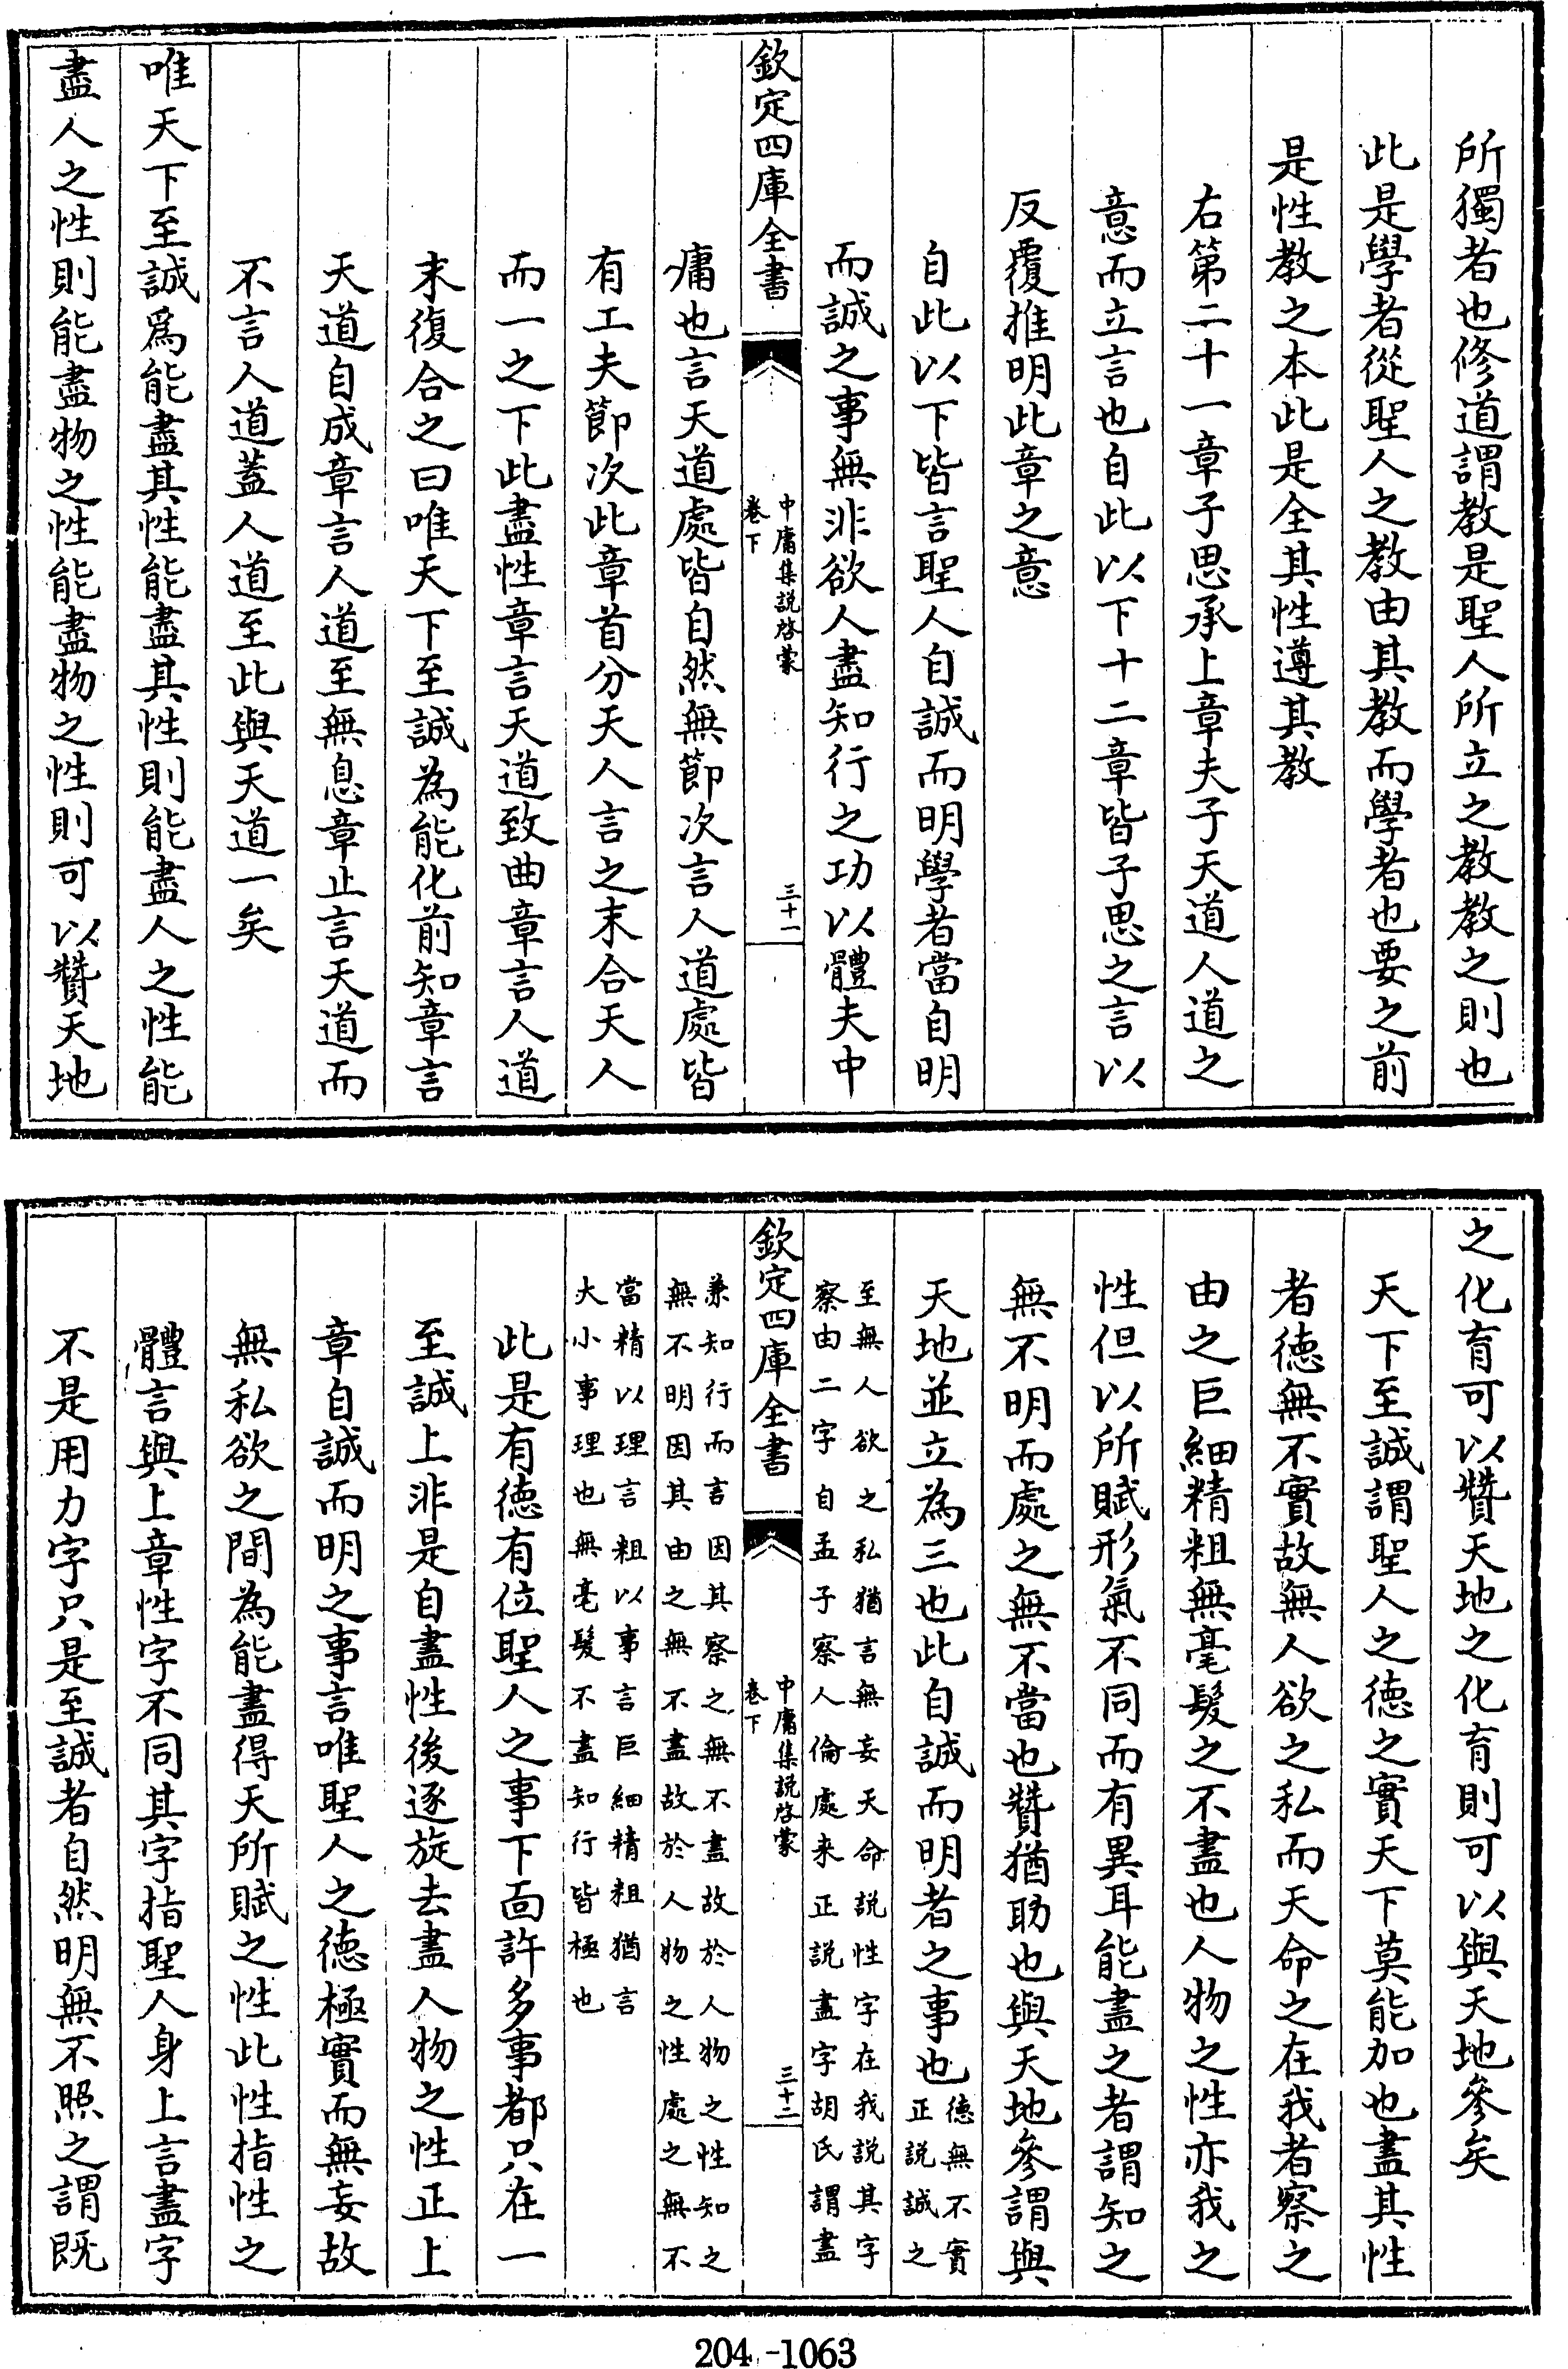 所獨者也修道謂教是聖人所立之教教之則也
此是學者從聖人之教由其教而學者也要之前
是性教之本此是全其性遵其教
右第二十一章子思承上章夫子天道人道之
意而立言也自此以下十二章皆子思之言以
反覆推明此章之意
自此以下皆言聖人自誠而明學者當自明
而誠之事無非欲人盡知行之功以體夫中
欽定四庫全書
中庸集説啓蒙
卷下
三十一
庸也言天道處皆自然無節次言人道處皆
有工夫節次此章首分天人言之末合天人
而一之下此盡性章言天道致曲章言人道
末復合之曰唯天下至誠為能化前知章言
天道自成章言人道至無息章止言天道而
不言人道蓋人道至此與天道一矣
唯天下至誠爲能盡其性能盡其性則能盡人之性能
盡人之性則能盡物之性能盡物之性則可以贊天地
之化育可以贊天地之化育則可以與天地參矣
天下至誠謂聖人之德之實天下莫能加也盡其性
者德無不實故無人欲之私而天命之在我者察之
由之巨細精粗無毫髮之不盡也人物之性亦我之
性但以所賦形氣不同而有異耳能盡之者謂知之
無不明而處之無不當也贊猶助也與天地參謂與
天地並立為三也此自誠而明者之事也
德無不實
正説誠之
至無人欲之私猶言無妄天命説性字在我説其字
察由二字自孟子察人倫處来正説盡字胡氏謂盡
欽定四庫全書
中庸集説啓蒙
卷下
三十二
兼知行而言因其察之無不盡故於人物之性知之
無不明因其由之無不盡故於人物之性處之無不
當精以理言粗以事言巨細精粗猶言
大小事理也無毫髮不盡知行皆極也
此是有德有位聖人之事下面許多事都只在一
至誠上非是自盡性後逐旋去盡人物之性正上
章自誠而明之事言唯聖人之德極實而無妄故
無私欲之間為能盡得天所賦之性此性指性之
體言與上章性字不同其字指聖人身上言盡字
不是用力字只是至誠者自然明無不照之謂既
204-1063